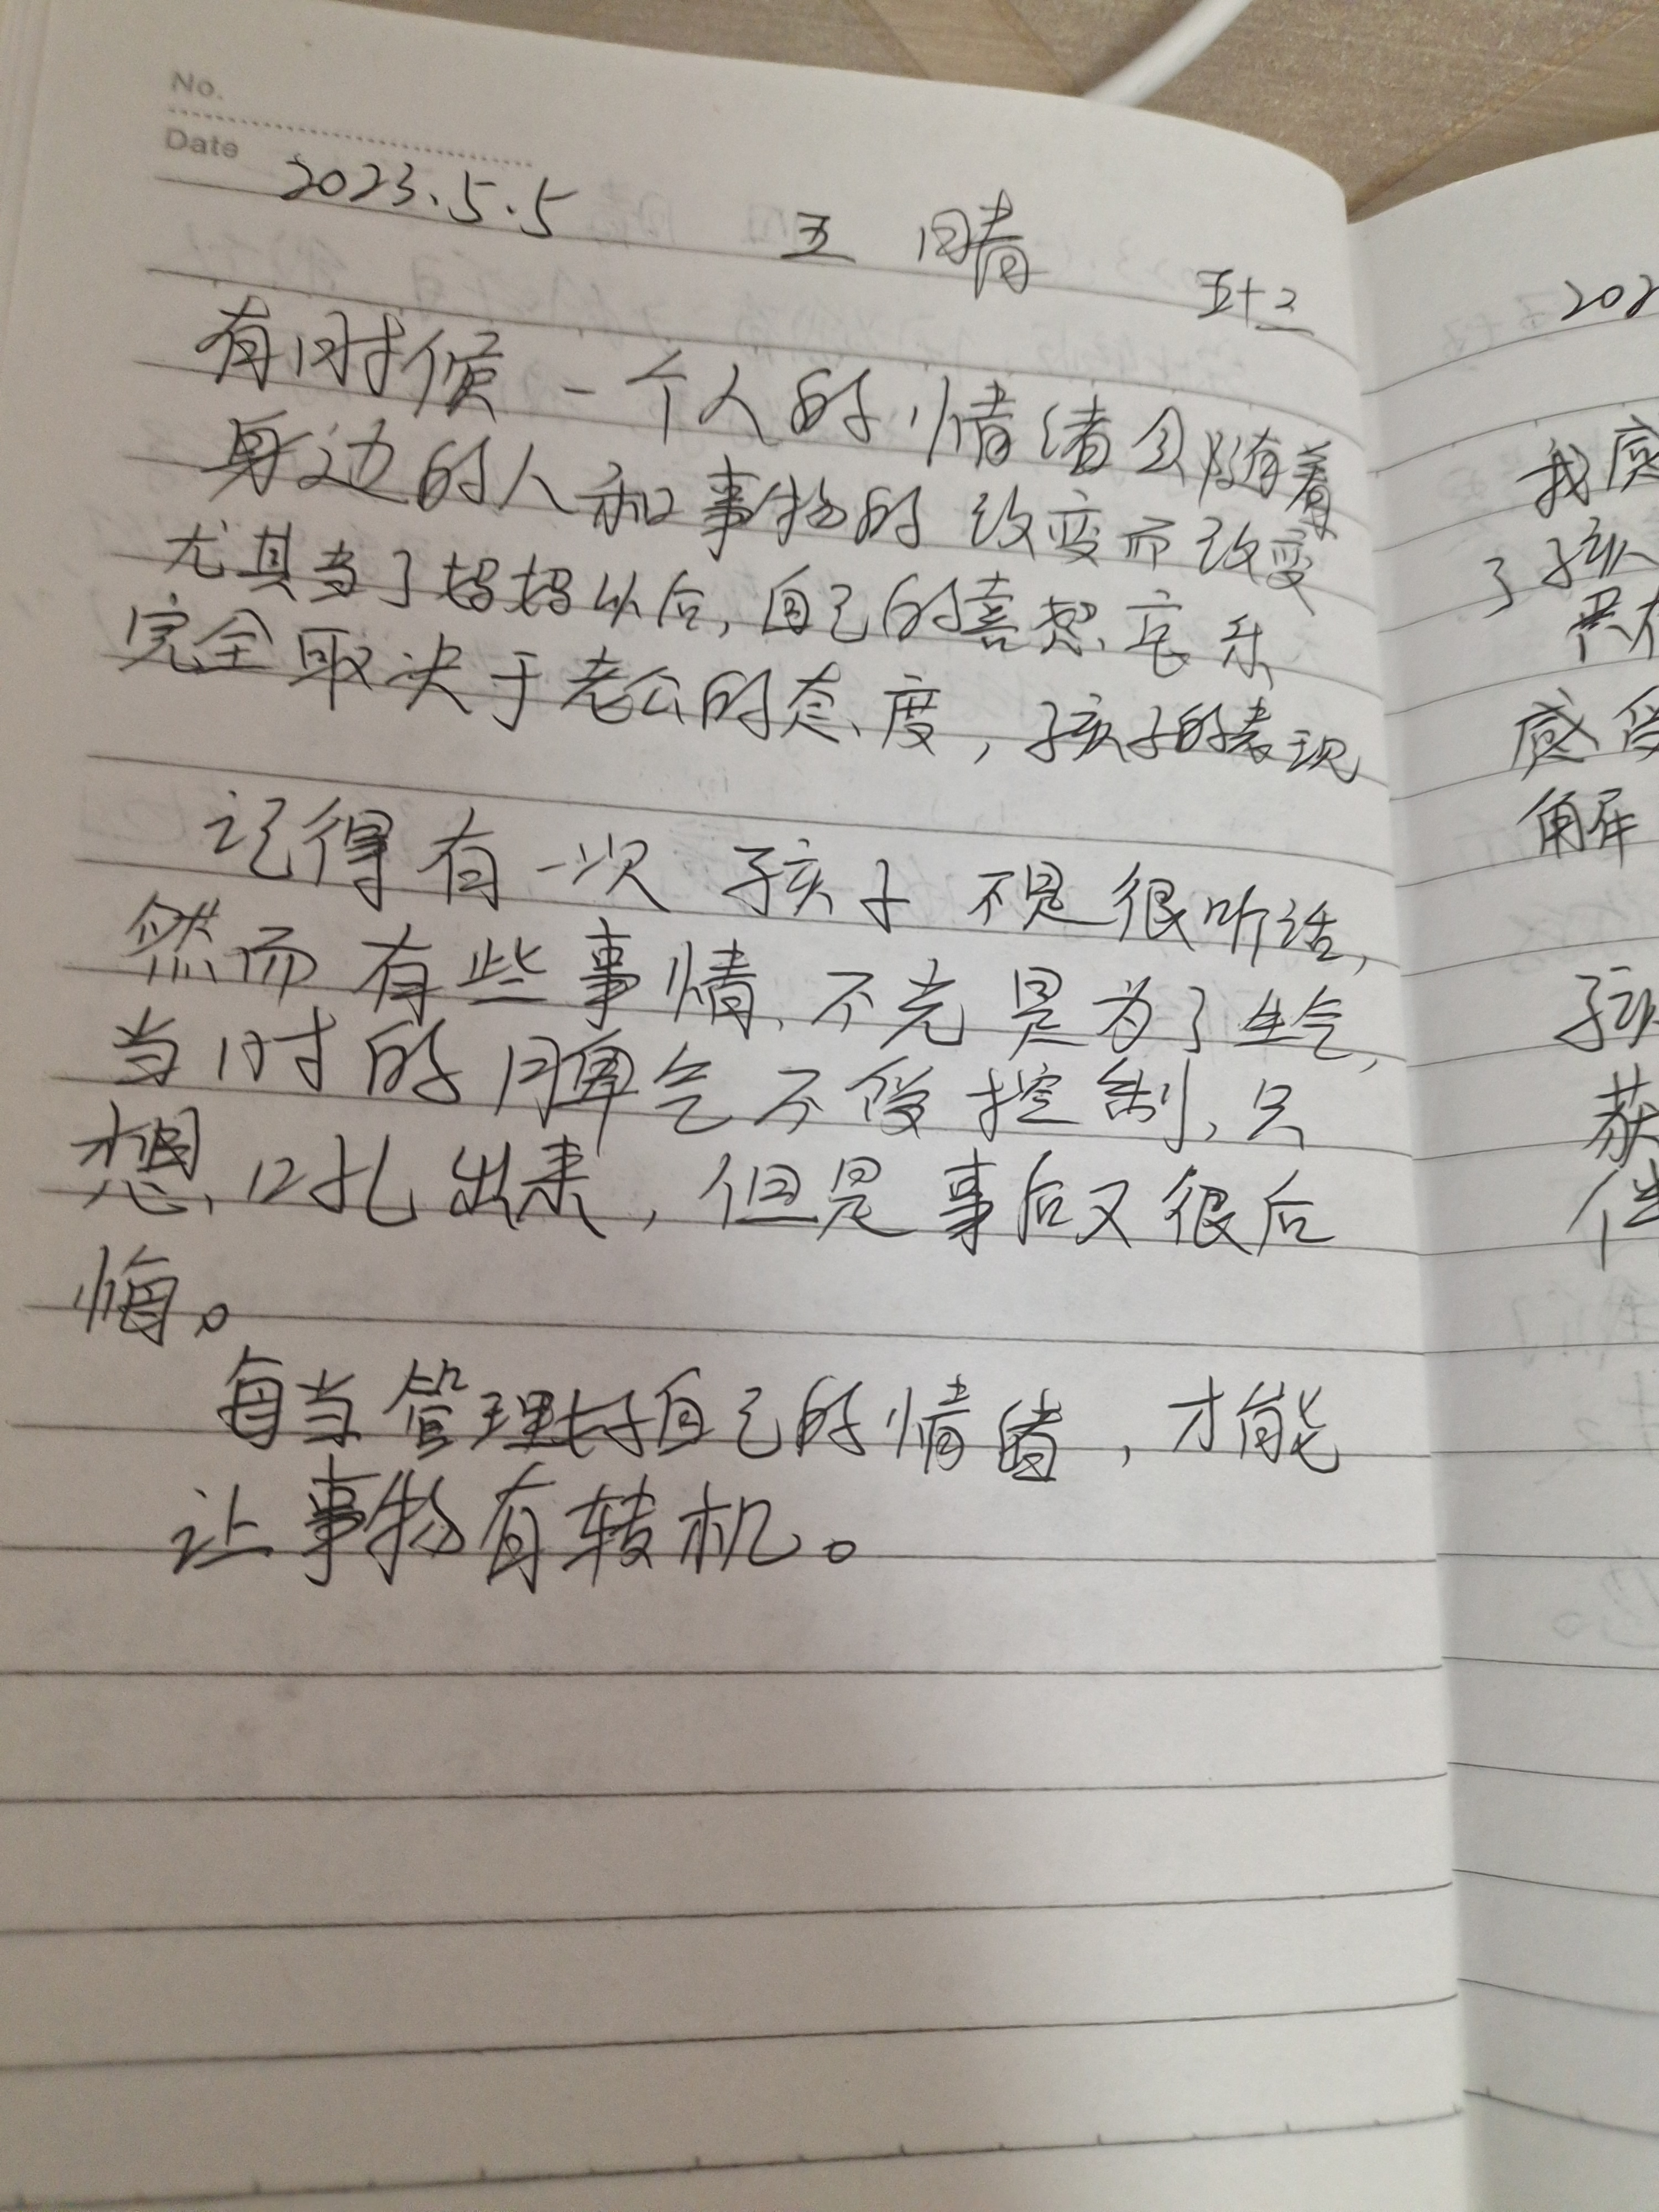 No.
Date 2023.5.5 五 晴
五十三
有时候一个人的情绪会随着
身边的人和事物的改变而改变
尤其当了妈妈以后,自己的喜怒哀乐
完全取决于老公的态度,孩子的表现
记得有一次 孩子 不是很听话,
然而有些事情,不光是为了生气,
当时的脾气不受控制,只
想,吼出来,但是事后又很后
悔。
每当管理好自己的情绪,才能
让事物有转机。
202
我
了孩
感受
解
孩
获